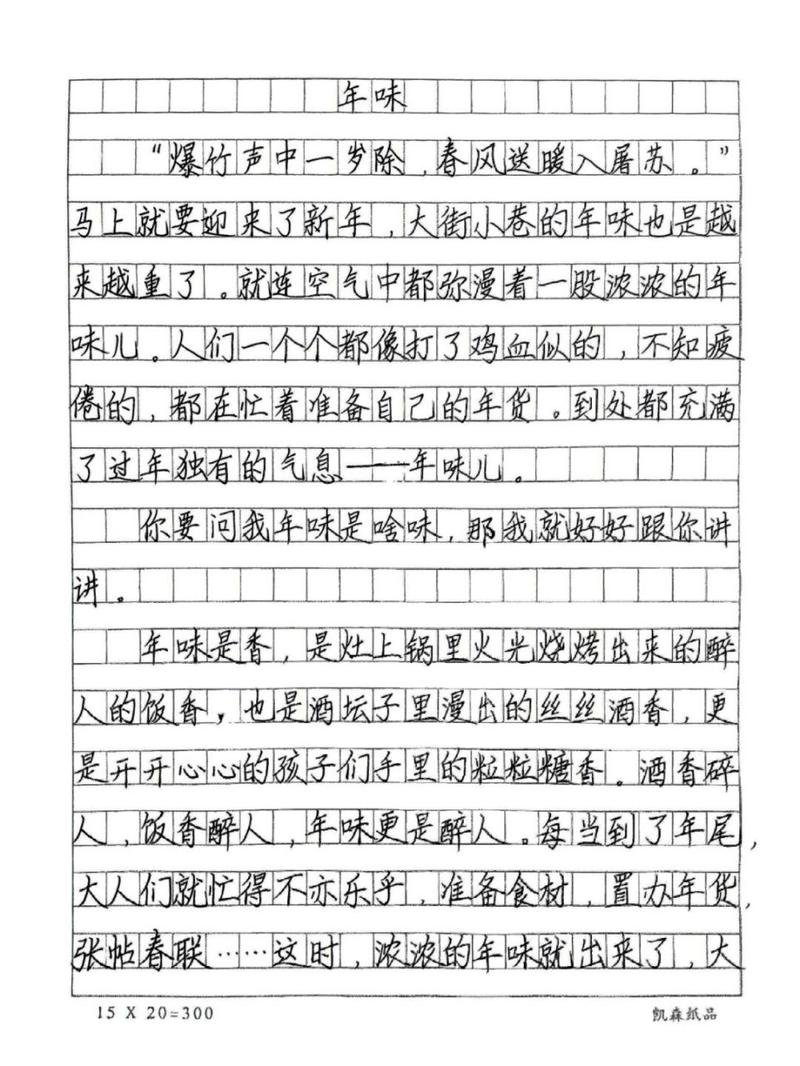 年味
“爆竹声中一岁除，春风送暖入屠苏。”
马上就要迎来了新年，大街小巷的年味也是越
来越重了。就连空气中都弥漫着一股浓浓的年
味儿。人们一个个都像打了鸡血似的，不知疲
倦的，都在忙着准备自己的年货。到处都充满
了过年独有的气息——年味儿。
你要问我年味是啥味，那我就好好跟你讲
讲。
年味是香，是灶上锅里火光烧烤出来的醉
人的饭香，也是酒坛子里漫出的丝丝酒香，更
是开开心心的孩子们手里的粒粒糖香。酒香碎
人，饭香醉人，年味更是醉人。每当到了年尾，
大人们就忙得不亦乐乎，准备食材，置办年货，
张帖春联……这时，浓浓的年味就出来了，大
15 X 20=300
凯森纸品